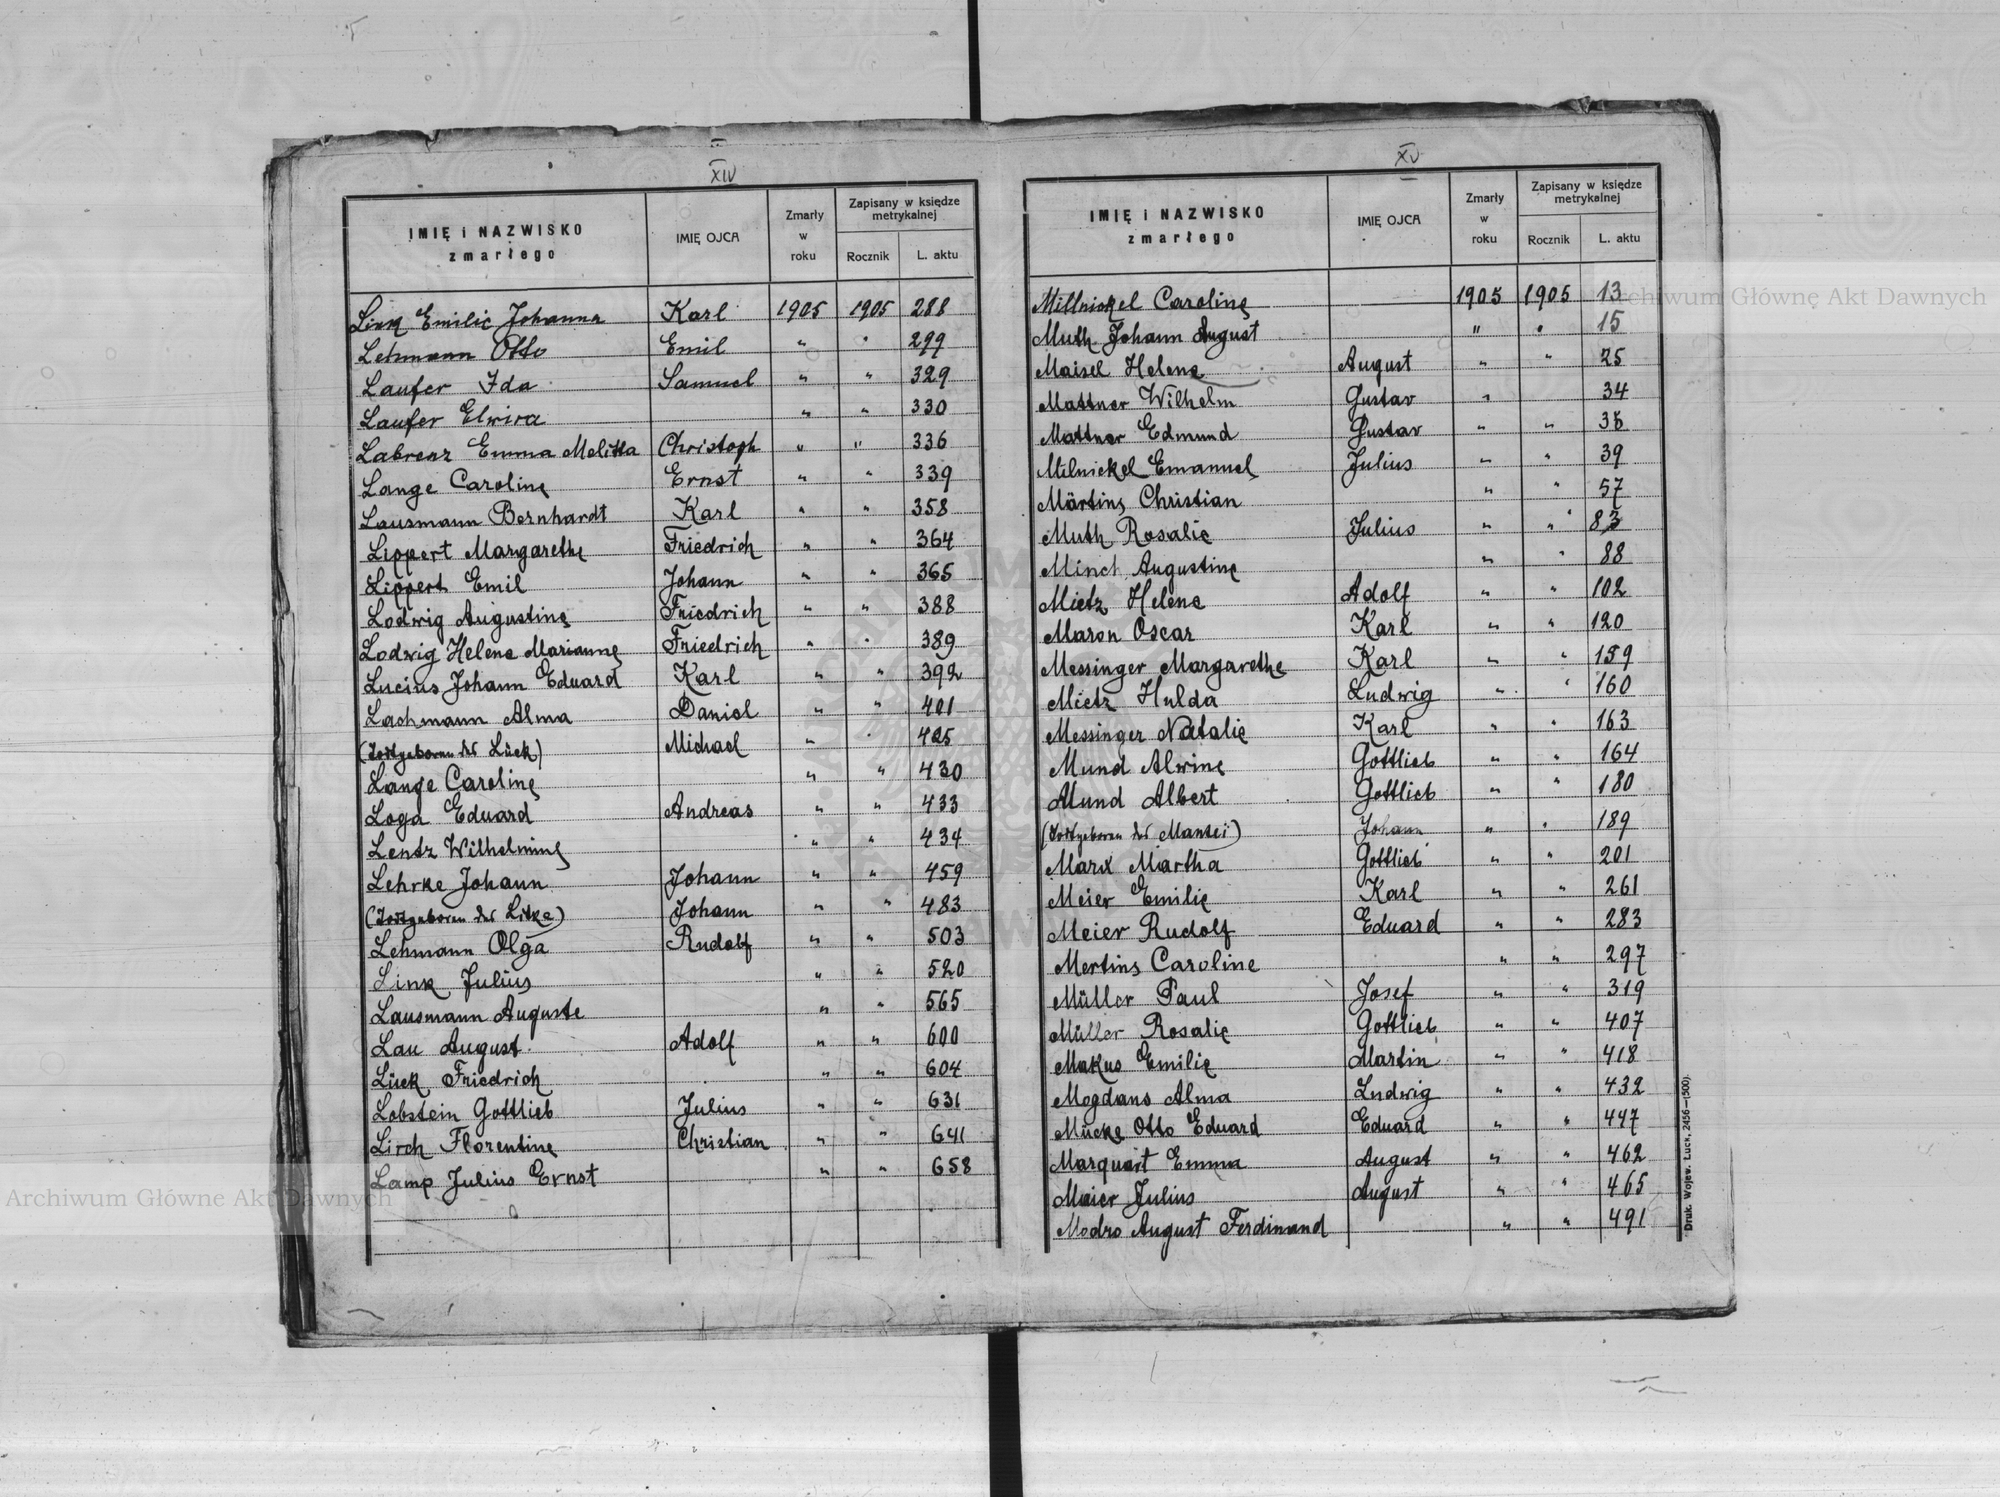 XIV
IMIĘ i NAZWISKO zmarłego IMIĘ OJCA Zmarły w roku Zapisany w księdze metrykalnej Rocznik L. aktu
Link Emilie Johanna Karl 1905 1905 288
Lehmann Otto Emil " " 299
Laufer Ida Samuel " " 329
Laufer Elwira " " 330
Labrenz Emma Melitta Christoph " " 336
Lange Caroline Ernst " " 339
Lausmann Bernhardt Karl " " 358
Lippert Margarethe Friedrich " " 364
Lippert Emil Johann " " 365
Lodwig Augustine Friedrich " " 388
Lodwig Helene Marianne Friedrich " " 389
Lucius Johann Eduard Karl " " 392
Lachmann Alma Daniel " " 401
(Totgeboren der Lück) Michael " " 425
Lange Caroline " " 430
Loga Eduard Andreas " " 433
Lentz Wilhelmine " " 434
Lehrke Johann Johann " " 459
(Totgeboren der Litke) Johann " " 483
Lehmann Olga Rudolf " " 503
Link Julius " " 520
Lausmann Auguste " " 565
Lau August Adolf " " 600
Lück Friedrich " " 604
Lobstein Gottlieb Julius " " 631
Lirch Florentine Christian " " 641
Lamp Julius Ernst " " 658
XV
IMIĘ i NAZWISKO zmarłego IMIĘ OJCA Zmarły w roku Zapisany w księdze metrykalnej Rocznik L. aktu
Millnickel Caroline 1905 1905 13
Muth Johann August " " 15
Maisel Helene August " " 25
Mattner Wilhelm Gustav " 34
Mattner Edmund Gustav " "
Milnickel Emanuel Julius " " 39
Märtins Christian " " 57
Muth Rosalie Julius " " 83
Minch Augustine " " 88
Mietz Helene Adolf " " 102
Maron Oscar Karl " " 120
Messinger Margarethe Karl " " 159
Mietz Hulda Ludwig " " 160
Messinger Natalie Karl " " 163
Mund Alwine Gottlieb " " 164
Mund Albert Gottlieb " " 180
(Totgeboren der Mantei) Johann " " 189
Marx Martha Gottlieb " " 201
Meier Emilie Karl " " 261
Meier Rudolf Eduard " " 283
Mertins Caroline " " 297
Müller Paul Josef " " 319
Müller Rosalie Gottlieb " " 407
Makus Emilie Martin " " 418
Mogdans Alma Ludwig " " 432
Mücke Otto Eduard Eduard " " 447
Marquart Emma August " " 462
Maier Julius August " " 465
Modro August Ferdinand " " 491
Druk. Wojew. Łuck, 2456—(500)
Archiwum Główne Akt Dawnych
Archiwum Główne Akt Dawnych